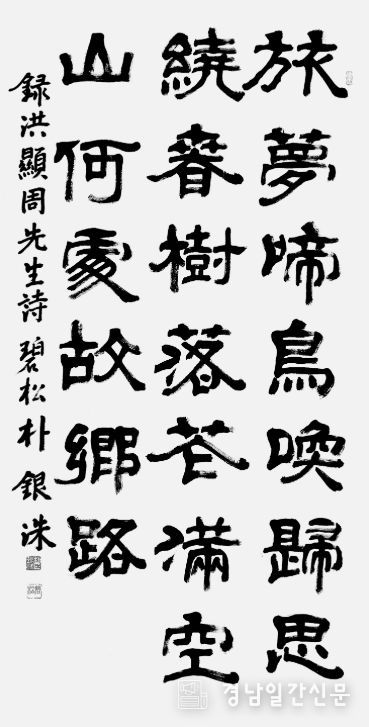 旅夢啼鳥喚歸思
繞春樹落花滿空
山何處故鄉路
録洪顯周先生詩 碧松 朴銀洙
경남일간신문